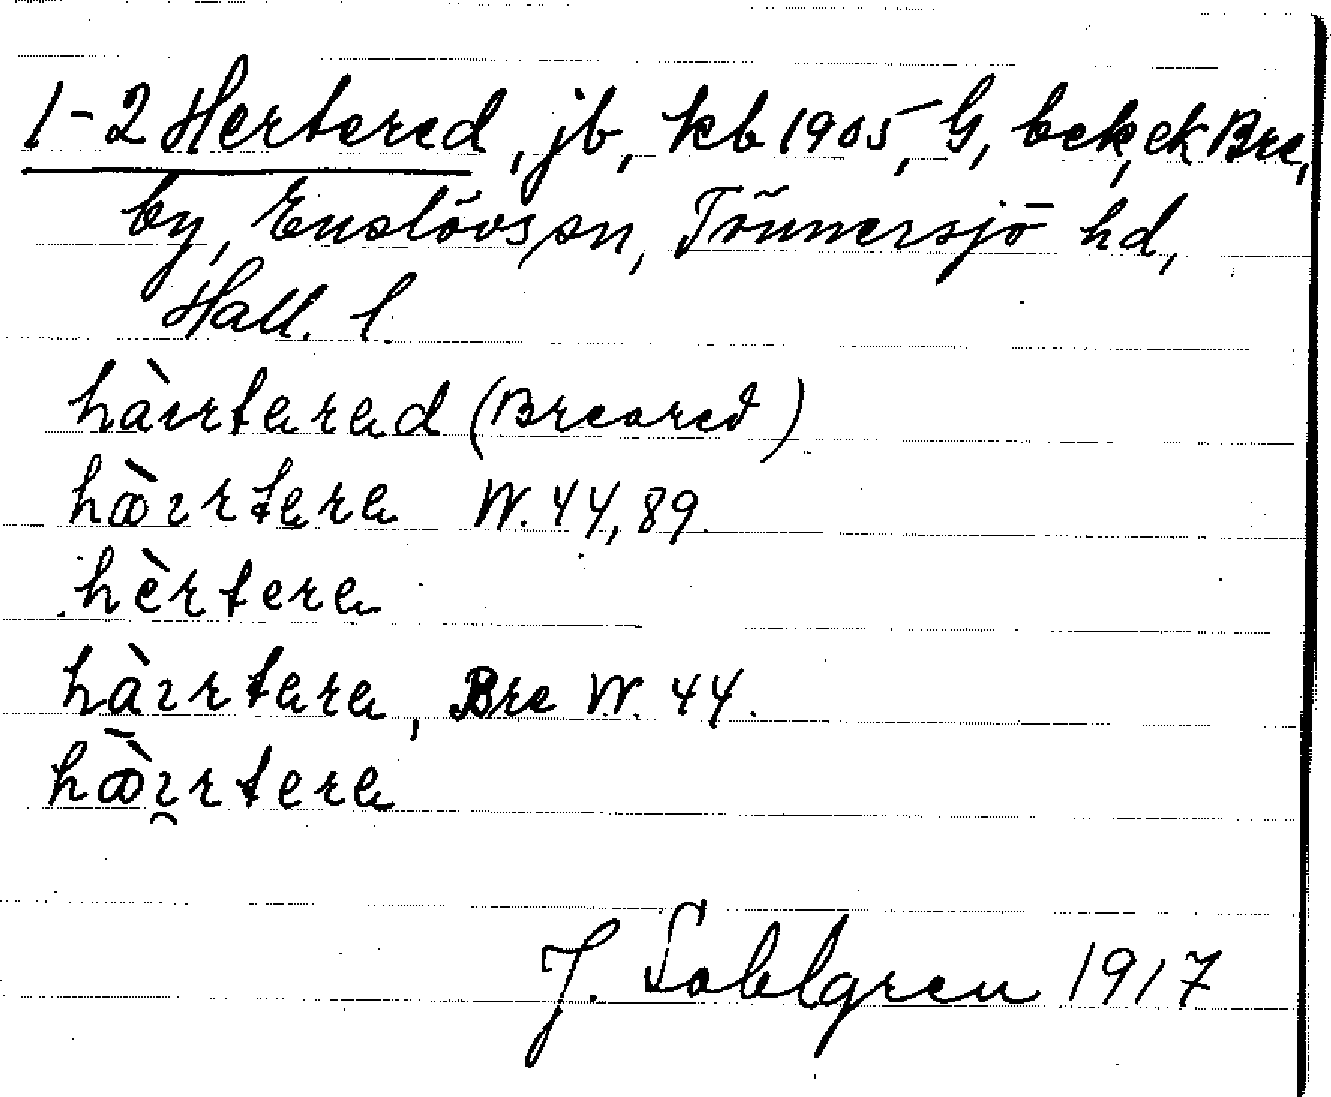 1-2 Hertered, jb, kb 1905, G, bek, ek Bre,
by, Enslövs sn, Tönnersjö hd,
Hall. l.
hàırtərəd (Breared)
hæ̀ırtərə W. 44, 89.
hèrterə
hàırtərə, Bre W. 44.
hæ̀ırterə
J. Sahlgren 1917